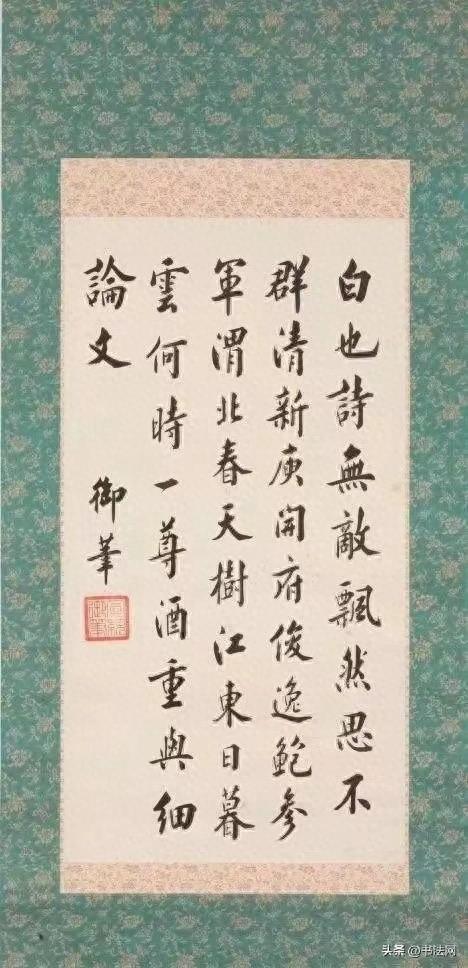 白也詩無敵飄然思不
群清新庾開府俊逸鮑參
軍渭北春天樹江東日暮
雲何時一尊酒重與細
論文
御筆
头条 @书法网